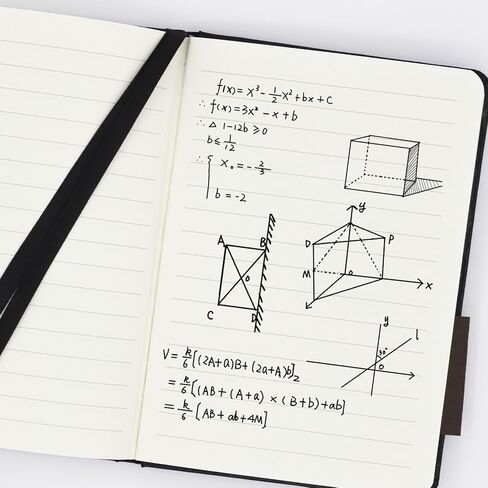 f(x) = x³ - 1/2 x² + bx + c
∴ f(x) = 3x² - x + b
∴ △ 1-12b ≥ 0
b ≤ 1/12
∴ { x₀ = - 2/3
b = -2
y
D P
M o x
A B
O
C D
y l
30°
O
V = k/6 [(2A+a)B + (2a+A)b]₂
= k/6 [(AB + (A+a) × (B+b) + ab]
= k/6 [AB + ab + 4M]